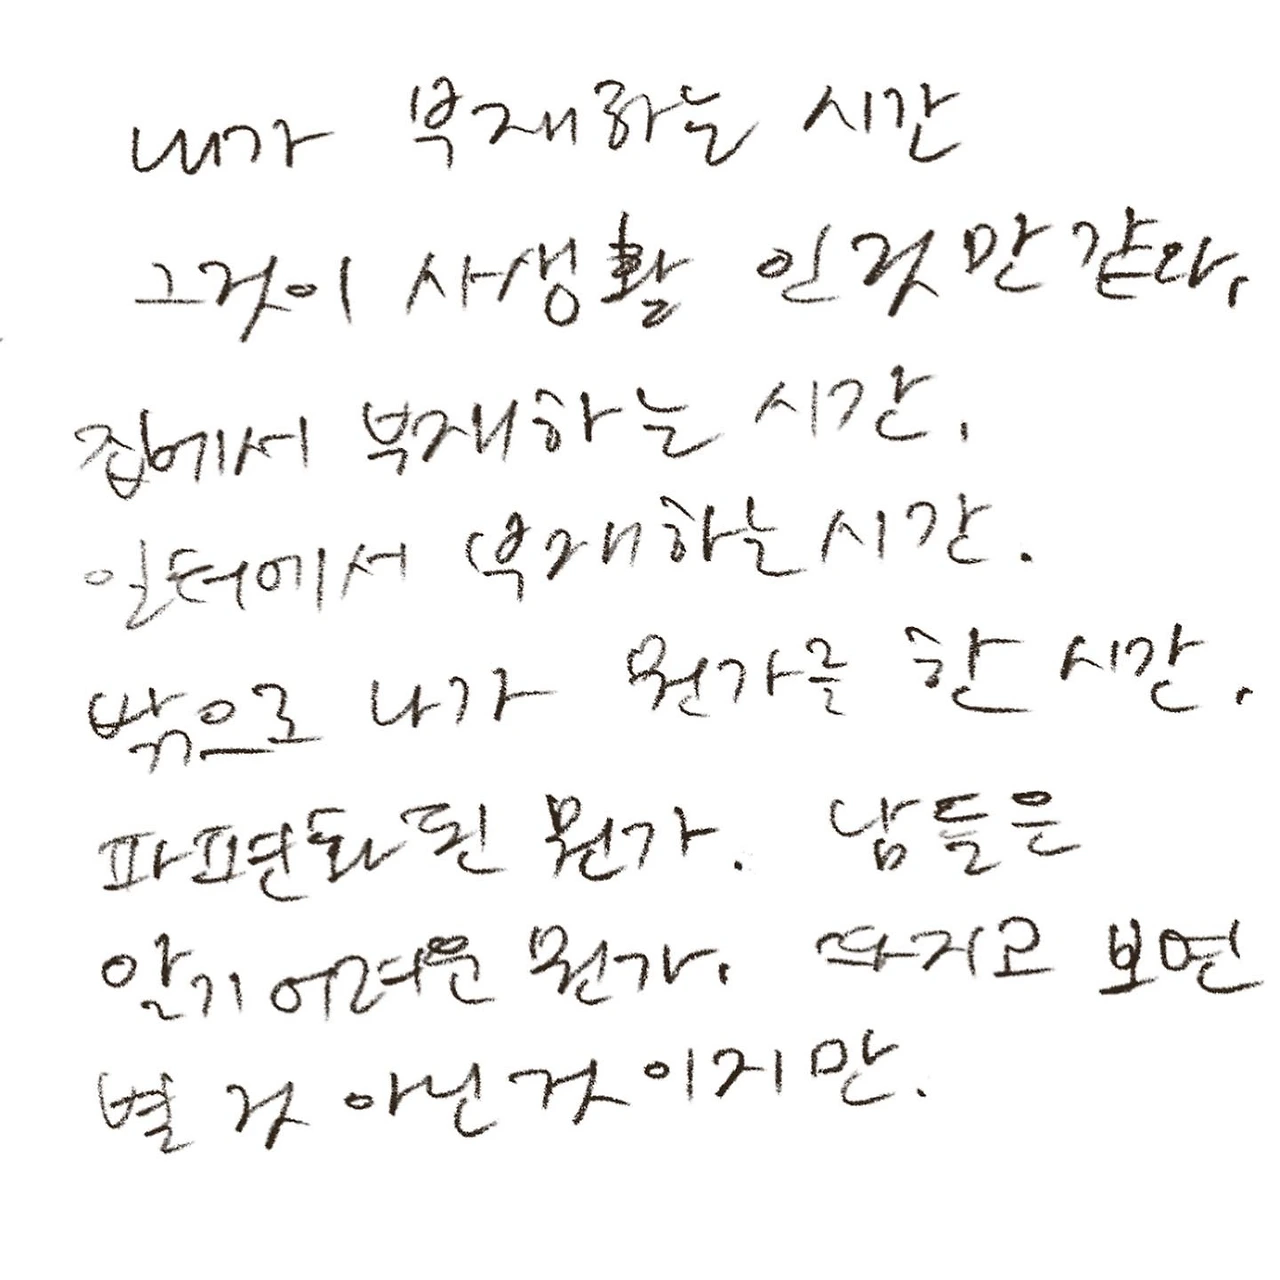 내가 부재하는 시간
그것이 사생활 인것만 같다.
집에서 부재하는 시간.
일터에서 부재하는 시간.
밖으로 나가 뭔가를 한 시간.
파편화된 뭔가. 남들은
알기 어려운 뭔가. 따지고 보면
별 것 아닌 것이지만.